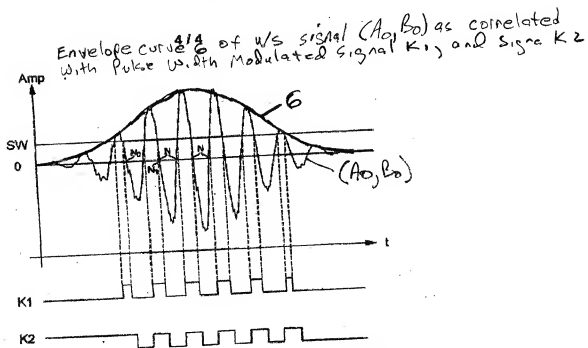 4/4
Envelope curve 6 of u/s signal (A0,B0) as correlated
with Pulse Width Modulated signal K1, and Signa K2
Amp
6
SW
0
N0 N N
N1
(A0,B0)
t
K1
K2